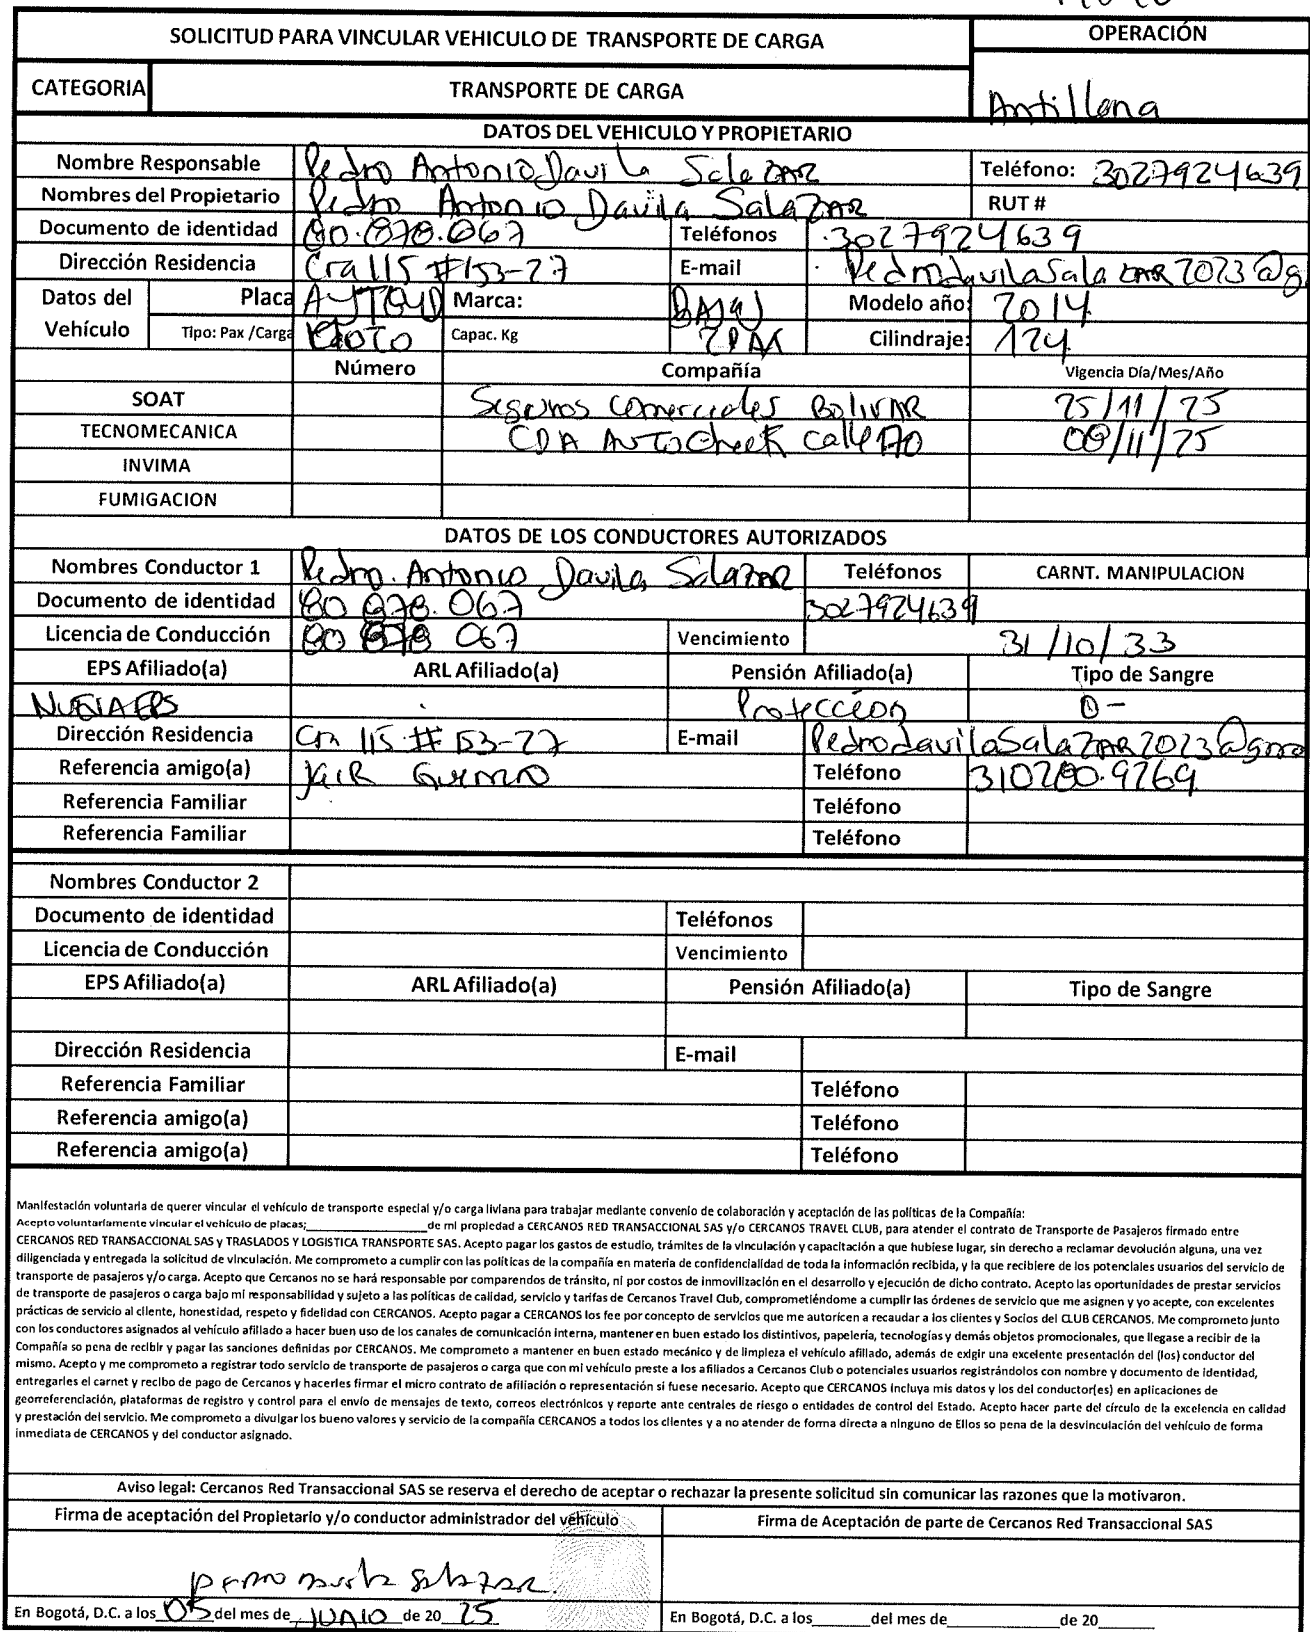 SOLICITUD PARA VINCULAR VEHICULO DE TRANSPORTE DE CARGA
OPERACIÓN
CATEGORIA TRANSPORTE DE CARGA
Antillana
DATOS DEL VEHICULO Y PROPIETARIO
Nombre Responsable Pedro Antonio Davila SalaZAR Teléfono: 3027924639
Nombres del Propietario Pedro Antonio Davila SalaZAR RUT #
Documento de identidad 80.878.067 Teléfonos 3027924639
Dirección Residencia Cra 115 #153-27 E-mail PedrodavilaSalaZAR2023@g
Datos del Vehículo Placa Marca: BAJAJ Modelo año: 2014
Tipo: Pax /Carga MOTO Capac. Kg Cilindraje: 124
Número Compañía Vigencia Día/Mes/Año
SOAT Seguros Comerciales BOLIVAR 25/11/25
TECNOMECANICA CDA AUTOCheck Calle 170 08/11/25
INVIMA
FUMIGACION
DATOS DE LOS CONDUCTORES AUTORIZADOS
Nombres Conductor 1 Pedro. Antonio Davila SalaZAR Teléfonos CARNT. MANIPULACION
Documento de identidad 80 878. 067 3027924639
Licencia de Conducción 80 878 067 Vencimiento 31/10/33
EPS Afiliado(a) ARL Afiliado(a) Pensión Afiliado(a) Tipo de Sangre
NUEVA EPS Protección O-
Dirección Residencia Cra 115 # 153-27 E-mail PedrodavilaSalaZAR2023@gma
Referencia amigo(a) JaiR Guerrero Teléfono 310280.9269
Referencia Familiar Teléfono
Referencia Familiar Teléfono
Nombres Conductor 2
Documento de identidad Teléfonos
Licencia de Conducción Vencimiento
EPS Afiliado(a) ARL Afiliado(a) Pensión Afiliado(a) Tipo de Sangre
Dirección Residencia E-mail
Referencia Familiar Teléfono
Referencia amigo(a) Teléfono
Referencia amigo(a) Teléfono
Manifestación voluntaria de querer vincular el vehículo de transporte especial y/o carga liviana para trabajar mediante convenio de colaboración y aceptación de las políticas de la Compañía:
Acepto voluntariamente vincular el vehículo de placas;____________________de mi propiedad a CERCANOS RED TRANSACCIONAL SAS y/o CERCANOS TRAVEL CLUB, para atender el contrato de Transporte de Pasajeros firmado entre
CERCANOS RED TRANSACCIONAL SAS y TRASLADOS Y LOGISTICA TRANSPORTE SAS. Acepto pagar los gastos de estudio, trámites de la vinculación y capacitación a que hubiese lugar, sin derecho a reclamar devolución alguna, una vez
diligenciada y entregada la solicitud de vinculación. Me comprometo a cumplir con las políticas de la compañía en materia de confidencialidad de toda la información recibida, y la que recibiere de los potenciales usuarios del servicio de
transporte de pasajeros y/o carga. Acepto que Cercanos no se hará responsable por comparendos de tránsito, ni por costos de inmovilización en el desarrollo y ejecución de dicho contrato. Acepto las oportunidades de prestar servicios
de transporte de pasajeros o carga bajo mi responsabilidad y sujeto a las políticas de calidad, servicio y tarifas de Cercanos Travel Club, comprometiéndome a cumplir las órdenes de servicio que me asignen y yo acepte, con excelentes
prácticas de servicio al cliente, honestidad, respeto y fidelidad con CERCANOS. Acepto pagar a CERCANOS los fee por concepto de servicios que me autoricen a recaudar a los clientes y Socios del CLUB CERCANOS. Me comprometo junto
con los conductores asignados al vehículo afiliado a hacer buen uso de los canales de comunicación interna, mantener en buen estado los distintivos, papelería, tecnologías y demás objetos promocionales, que llegase a recibir de la
Compañía so pena de recibir y pagar las sanciones definidas por CERCANOS. Me comprometo a mantener en buen estado mecánico y de limpieza el vehículo afiliado, además de exigir una excelente presentación del (los) conductor del
mismo. Acepto y me comprometo a registrar todo servicio de transporte de pasajeros o carga que con mi vehículo preste a los afiliados a Cercanos Club o potenciales usuarios registrándolos con nombre y documento de identidad,
entregarles el carnet y recibo de pago de Cercanos y hacerles firmar el micro contrato de afiliación o representación si fuese necesario. Acepto que CERCANOS incluya mis datos y los del conductor(es) en aplicaciones de
georreferenciación, plataformas de registro y control para el envío de mensajes de texto, correos electrónicos y reporte ante centrales de riesgo o entidades de control del Estado. Acepto hacer parte del círculo de la excelencia en calidad
y prestación del servicio. Me comprometo a divulgar los bueno valores y servicio de la compañía CERCANOS a todos los clientes y a no atender de forma directa a ninguno de Ellos so pena de la desvinculación del vehículo de forma
inmediata de CERCANOS y del conductor asignado.
Aviso legal: Cercanos Red Transaccional SAS se reserva el derecho de aceptar o rechazar la presente solicitud sin comunicar las razones que la motivaron.
Firma de aceptación del Propietario y/o conductor administrador del vehículo Firma de Aceptación de parte de Cercanos Red Transaccional SAS
En Bogotá, D.C. a los 05 del mes de JUNIO de 20 25 En Bogotá, D.C. a los______del mes de__________de 20______